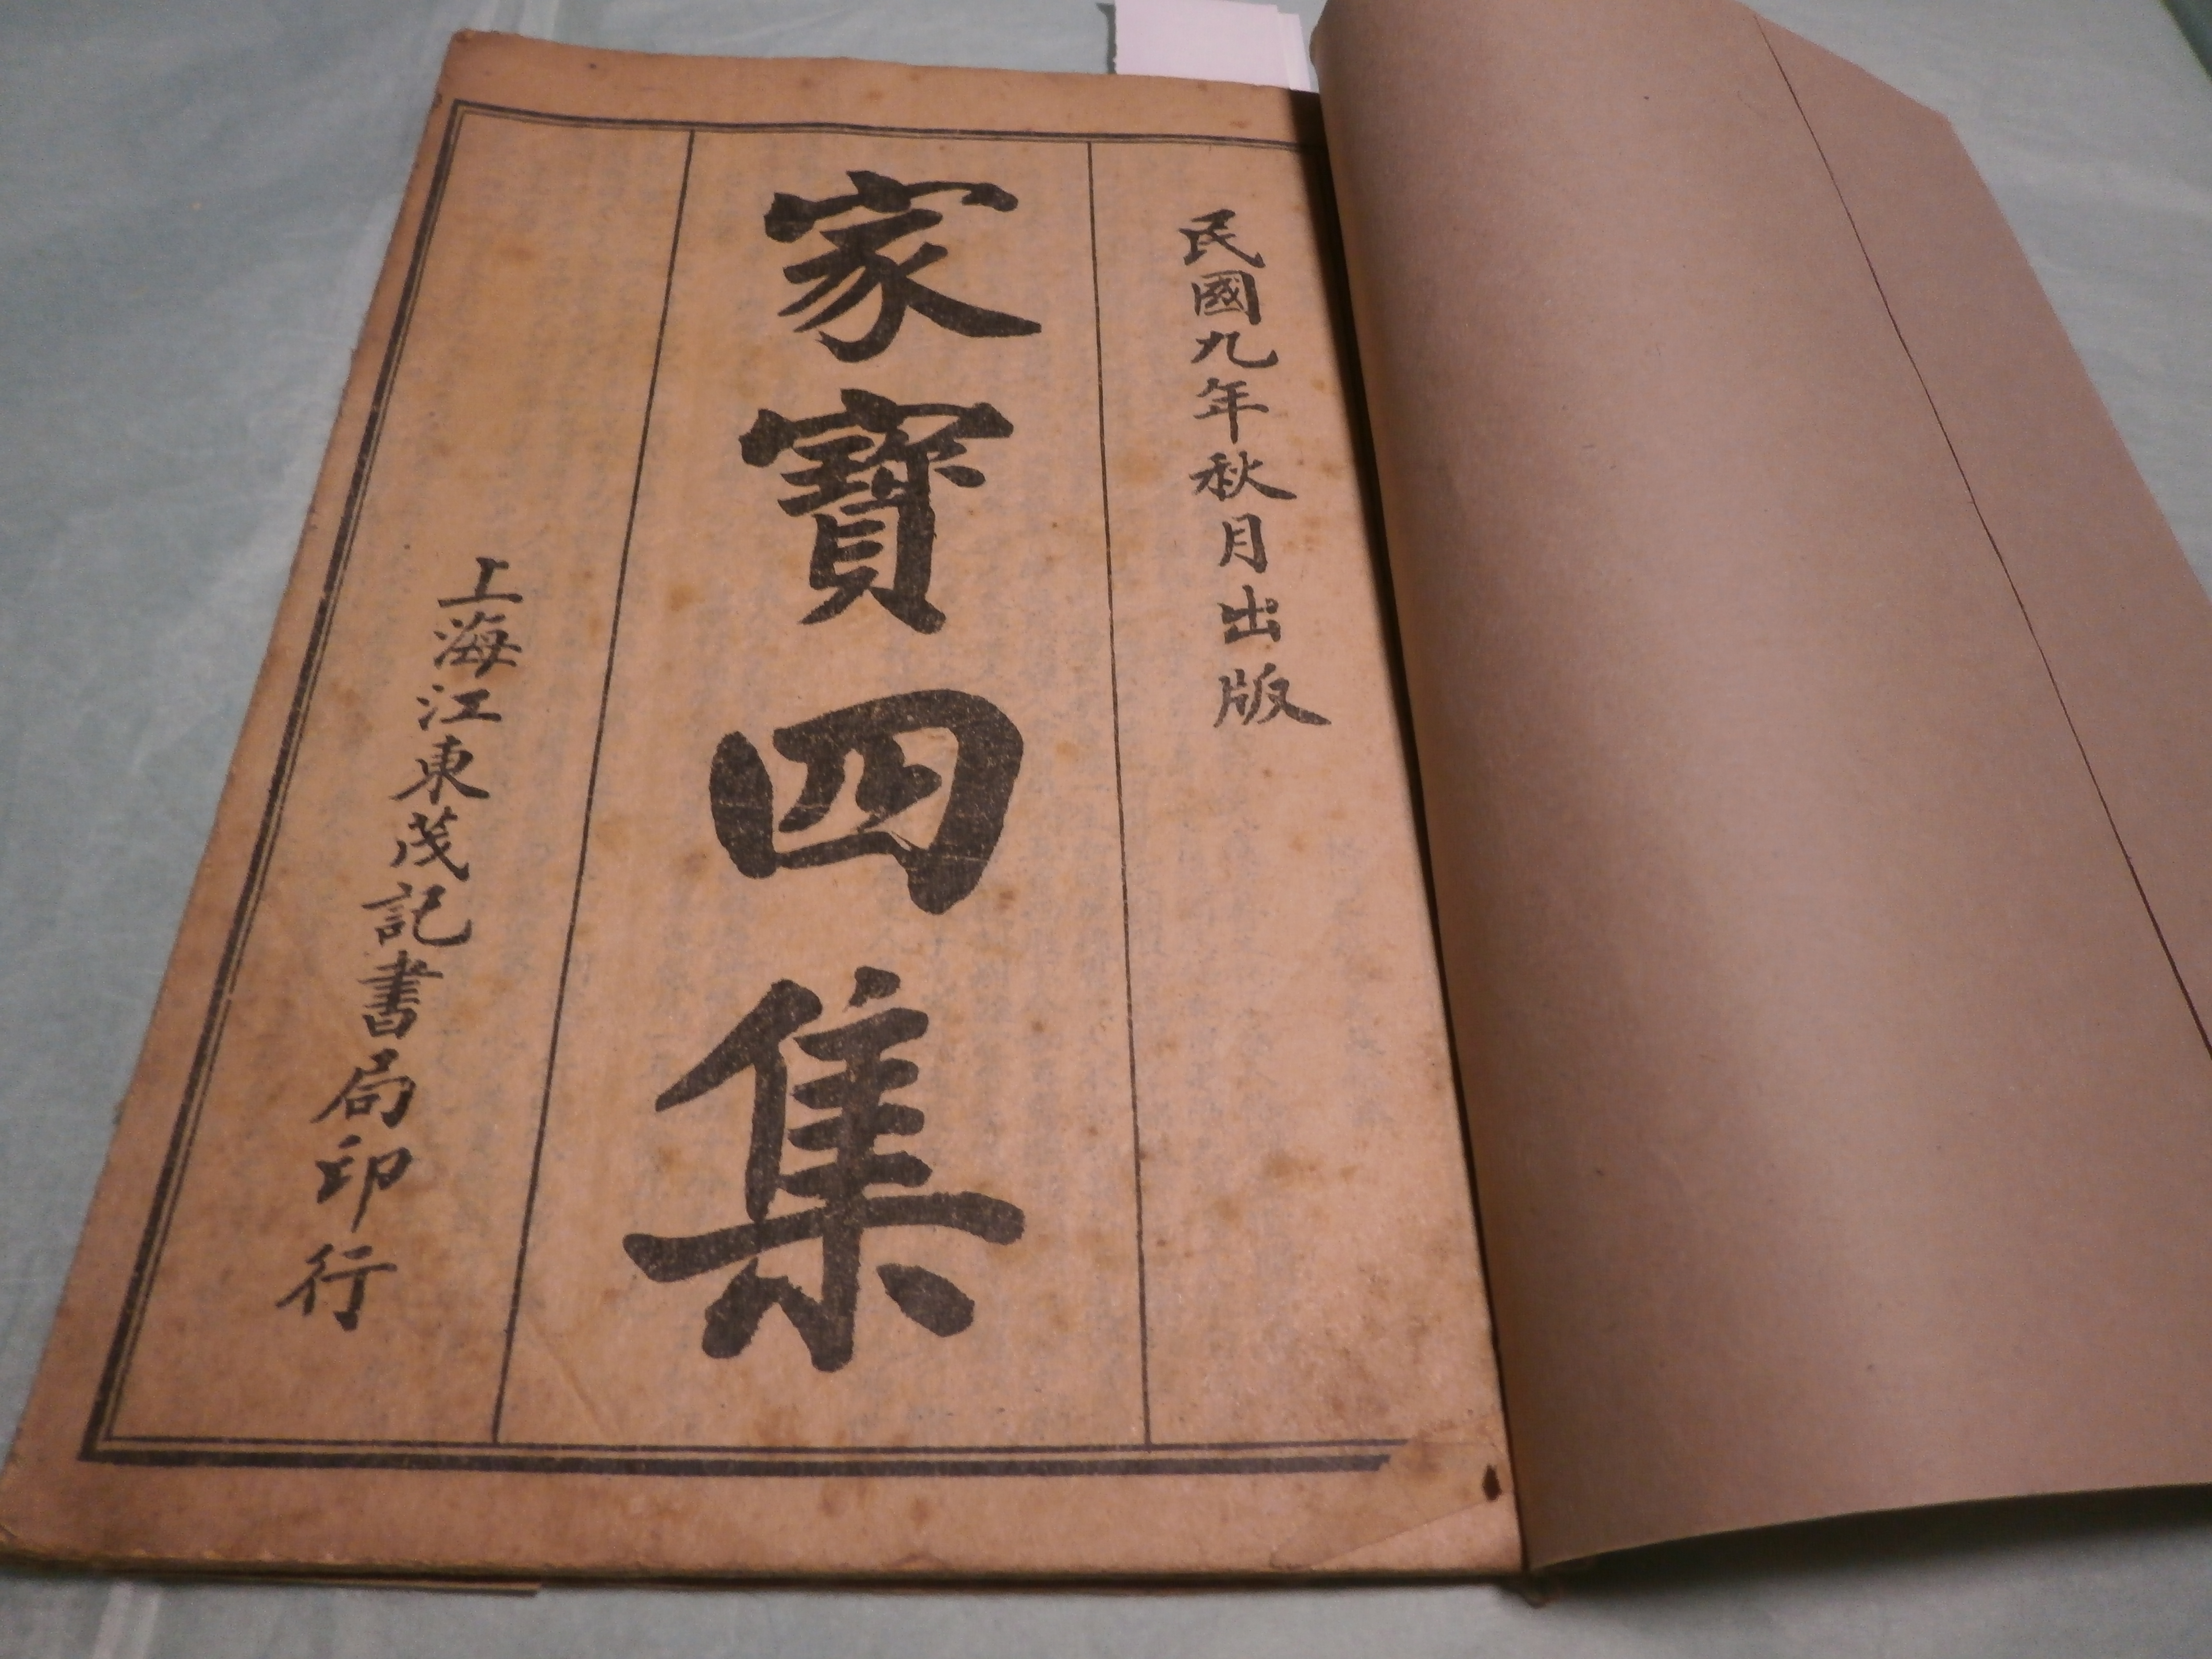 民國九年秋月出版
家寶四集
上海江東茂記書局印行